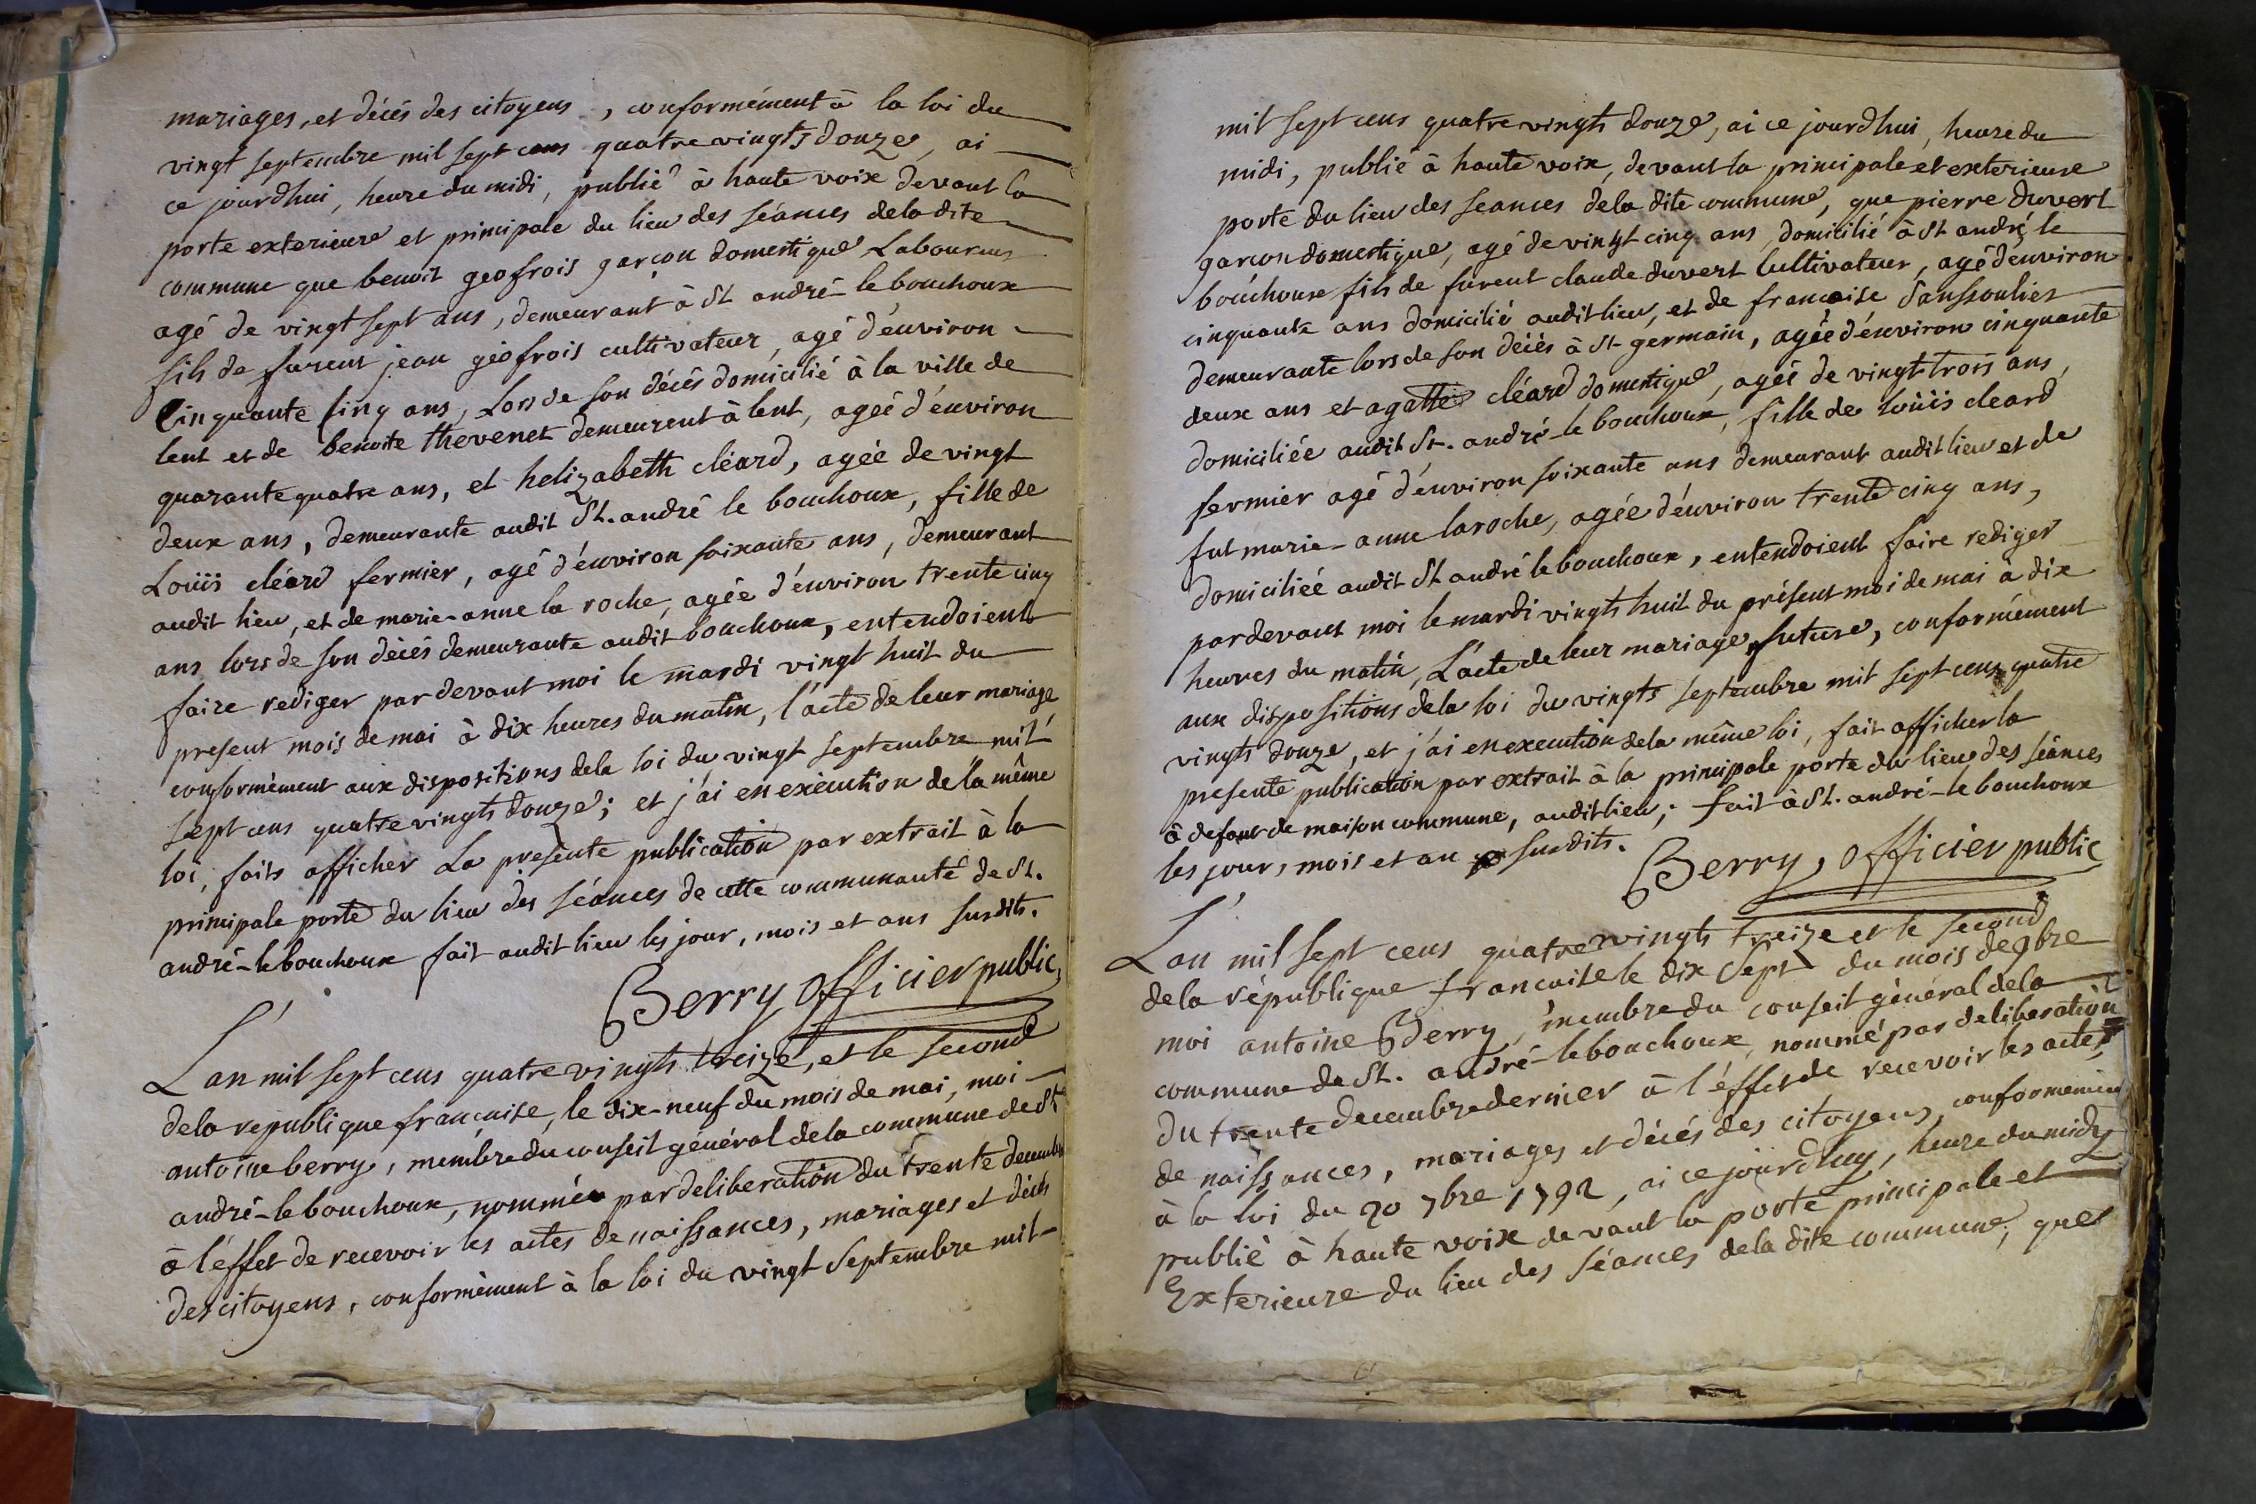 mariages, et décés des citoyens, conformément à la loi du
vingt septembre mil sept cens quatre vingts douze, ai
ce jourdhui, heure du midi, publié à haute voix devant la
porte exterieure et principale du lieu des séances dela dite
commune que benoit geofrois garçon domestique Laboureur
agé de vingt sept ans, demeurant à St andré-le bouchoux
fils de furent jean géofrois cultivateur, agé d'environ
Cinquante cinq ans, Lors de son décés domicilié à la ville de
lent et de benoite thevenet demeurent à lent, agéé d'énviron
quarante quatre ans, et helizabeth cléard, agéé de vingt
deux ans, demeurante audit St. andré le bouchoux, fille de
Loüis cléard fermier, agé d'énviron soixante ans, demeurant
audit lieu, et de marie-anne la roche, agée d'énviron trente cinq
ans lors de son décés demeurante audit bouchoux, entendoient
faire rediger par devant moi le mardi vingt huit du
present mois de mai à dix heures du matin, l'acte de leur mariage
conformément aux dispositions dela loi du vingt septembre mil
sept cens quatre vingts douze; et j'ai en exécution de la même
loi, faits afficher La presente publication par extrait à la
principale porte du lieu des séances de cette communauté de St.
andré-le bouchoux fait audit lieu les jour, mois et ans susdits.
Berry officier public
L'an mil sept cens quatre vingts treize, et le second
dela republique française, le dix-neuf du mois de mai, moi
antoine berry, membre du conseil général dela commune de St
andré-le bouchoux, nommé par deliberation du trente decembre
à l'éffet de recevoir les actes de naissances, mariages et décés
des citoyens, conformément à la loi du vingt septembre mil
mil sept cens quatre vingts douze, ai ce jourdhui, heure du
midi, publié à haute voix, devant la principale et exterieure
porte du lieu des seances dela dite commune, que pierre duvert
garcon domestique, agé de vingt cinq ans domicilié à St andré le
bouchoux fils de furent claude duvert Cultivateur, agé d'énviron
cinquante ans domicilié audit lieu, et de francoise Sanssoulier
demeurante lors de son décés à St germain, agéé d'énviron cinquante
deux ans et agatte cléard domestique, agéé de vingt trois ans,
domiciliée audit St. andré-le bouchoux, fille de loüis cleard
fermier agé d'énviron soixante ans demeurant audit lieu et de
fut marie-anne laroche, agéé d'énviron trente cinq ans,
domiciliéé audit St andré le bouchoux, entendoient faire rediger
pardevant moi le mardi vingts huit du présent moi de mai à dix
heures du matin, L'acte de leur mariage future, conformément
aux dispositions dela loi du vingts septembre mil sept cens quatre
vingts douze, et j'ai en execution dela même loi, fait afficher la
presente publication par extrait à la principale porte du lieu des séances
à defaut de maison commune, audit lieu; fait à St. andré-le bouchoux
les jour, mois et an susdits.
Berry, officier public
L'an mil sept cens quatre vingts treize et le second
dela république francaise le dix sept du mois de 9bre
moi antoine Berry, membre du conseil général dela
commune de St. andré-lebouchoux, nommé par deliberation
du trente decembre dernier à l'éffet de recevoir les actes
de naissances, mariages et décés des citoyens, conformement
à la loi du 20 7bre 1792, ai ce jourdhuy, heure du midy
publié à haute voix devant la porte principale et
Exterieure du lieu des séances dela dite commune, que